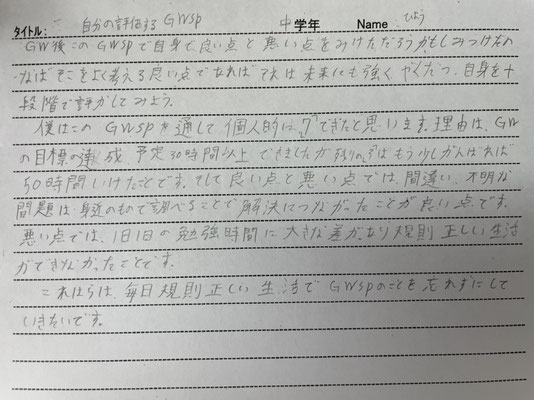 タイトル: 自分の評価するGWSP 中学年 Name ひょう
GW後このGWSPで自身で良い点と悪い点をみけただろうかもしみつけた
なばそこをよく考える良い点であれば それは、未来にも強く やくだつ、自身を十
段階で評がしてみよう。
僕はこのGWSPを通して個人的に、7できたと思います。理由は、GW
の目標の達成、予定30時間以上 できましたが残りの3はもう少しがんばれば
50時間いけたことです。そして良い点と悪い点では、間違い、不明な
問題は身近のもので調べることで解決につながったことが良い点です。
悪い点では、1日1日の勉強時間に大きな差があり規則正しい生活
ができなかったことです。
これはらは、毎日規則正しい生活でGWSPのことを忘れずにして
いきたいです。